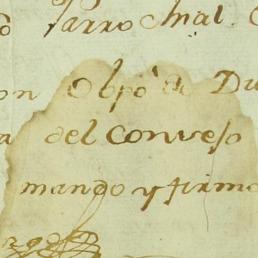 Parrochial. C
on Obpo de Du
a del Conveso
mando y firmo